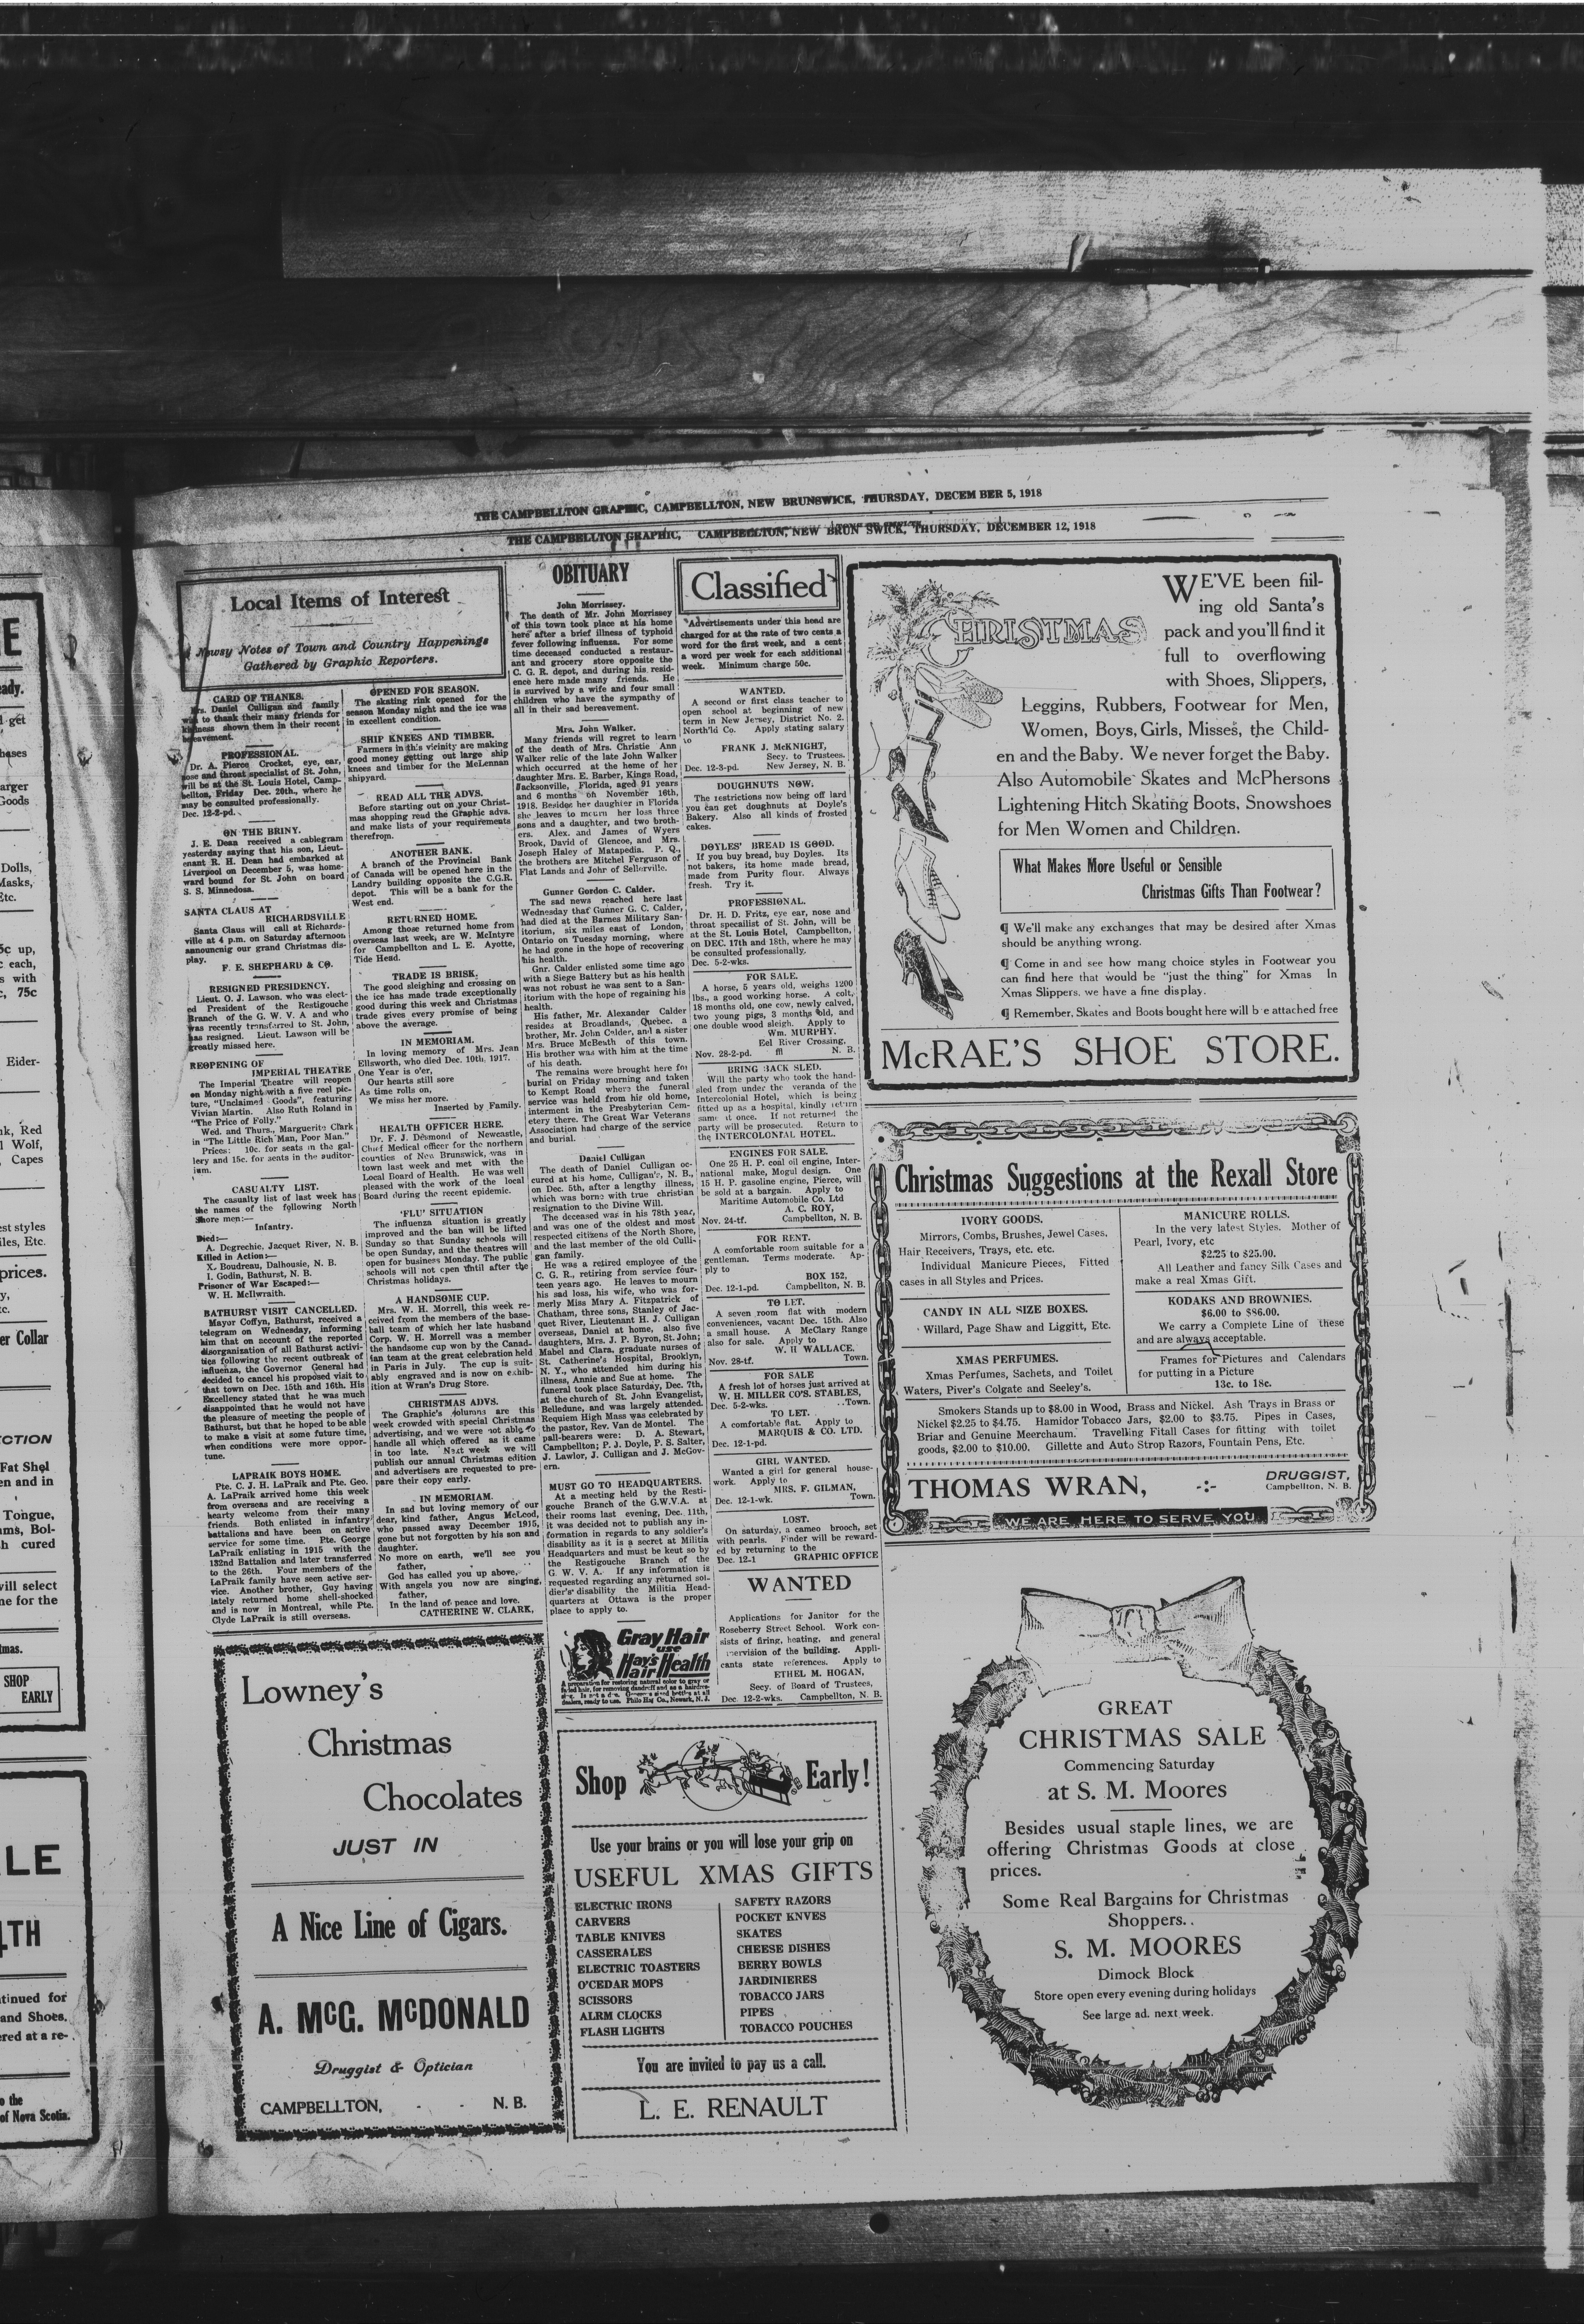 THE CAMPBELLTON GRAPHIC, CAMPBELLTON, NEW BRUNSWICK, THURSDAY, DECEMBER 5, 1918
THE CAMPBELLTON GRAPHIC, CAMPBELLTON, NEW BRUNSWICK, THURSDAY, DECEMBER 12, 1918
Local Items of Interest
Newsy Notes of Town and Country Happenings
Gathered by Graphic Reporters.
CARD OF THANKS.
Mrs. Daniel Culligan and family
wish to thank their many friends for
kindness shown them in their recent
bereavement.
PROFESSIONAL.
Dr. A. Pierce Crocket, eye, ear,
nose and throat specialist of St. John,
will be at the St. Louis Hotel, Camp-
bellton, Friday Dec. 20th., where he
may be consulted professionally.
Dec. 12-2-pd.
ON THE BRINY.
J. E. Dean received a cablegram
yesterday saying that his son, Lieut-
enant R. H. Dean had embarked at
Liverpool on December 5, was home-
ward bound for St. John on board
S. S. Minnedosa.
SANTA CLAUS AT
RICHARDSVILLE
Santa Claus will call at Richards-
ville at 4 p.m. on Saturday afternoon
announcnig our grand Christmas dis-
play.
F. E. SHEPHARD & CO.
RESIGNED PRESIDENCY.
Lieut. O. J. Lawson, who was elect-
ed President of the Restigouche
Branch of the G. W. V. A and who
was recently transferred to St. John,
has resigned. Lieut. Lawson will be
greatly missed here.
REOPENING OF
IMPERIAL THEATRE
The Imperial Theatre will reopen
on Monday night with a five reel pic-
ture, "Unclaimed Goods", featuring
Vivian Martin. Also Ruth Roland in
"The Price of Folly."
Wed. and Thurs., Marguerite Clark
in "The Little Rich Man, Poor Man."
Prices: 10c. for seats in the gal-
lery and 15c. for seats in the auditor-
ium.
CASUALTY LIST.
The casualty list of last week has
the names of the following North
Shore men:—
Infantry.
Died:—
A. Degrechie, Jacquet River, N. B.
Killed in Action:—
X. Boudreau, Dalhousie, N. B.
I. Godin, Bathurst, N. B.
Prisoner of War Escaped:—
W. H. McIlwraith.
BATHURST VISIT CANCELLED.
Mayor Coffyn, Bathurst, received a
telegram on Wednesday, informing
him that on account of the reported
disorganisation of all Bathurst activi-
ties following the recent outbreak of
influenza, the Governor General had
decided to cancel his proposed visit to
that town on Dec. 15th and 16th. His
Excellency stated that he was much
disappointed that he would not have
the pleasure of meeting the people of
Bathurst, but that he hoped to be able
to make a visit at some future time,
when conditions were more oppor-
tune.
LAPRAIK BOYS HOME.
Pte. C. J. H. LaPraik and Pte. Geo.
A. LaPraik arrived home this week
from overseas and are receiving a
hearty welcome from their many
friends. Both enlisted in infantry
battalions and have been on active
service for some time. Pte. George
LaPraik enlisting in 1915 with the
132nd Battalion and later transferred
to the 26th. Four members of the
LaPraik family have seen active ser-
vice. Another brother, Guy having
lately returned home shell-shocked
and is now in Montreal, while Pte.
Clyde LaPraik is still overseas.
OPENED FOR SEASON.
The skating rink opened for the
season Monday night and the ice was
in excellent condition.
SHIP KNEES AND TIMBER.
Farmers in this vicinity are making
good money getting out large ship
knees and timber for the McLennan
shipyard.
READ ALL THE ADVS.
Before starting out on your Christ-
mas shopping read the Graphic advs.
and make lists of your requirements
therefrom.
ANOTHER BANK.
A branch of the Provincial Bank
of Canada will be opened here in the
Landry building opposite the C.G.R.
depot. This will be a bank for the
West end.
RETURNED HOME.
Among those returned home from
overseas last week, are W. McIntyre
for Campbellton and L. E. Ayotte,
Tide Head.
TRADE IS BRISK.
The good sleighing and crossing on
the ice has made trade exceptionally
good during this week and Christmas
trade gives every promise of being
above the average.
IN MEMORIAM.
In loving memory of Mrs. Jean
Ellsworth, who died Dec. 10th, 1917.
One Year is o'er,
Our hearts still sore
As time rolls on,
We miss her more.
Inserted by Family.
HEALTH OFFICER HERE.
Dr. F. J. Desmond of Newcastle,
Chief Medical officer for the northern
counties of New Brunswick, was in
town last week and met with the
Local Board of Health. He was well
pleased with the work of the local
Board during the recent epidemic.
'FLU' SITUATION
The influenza situation is greatly
improved and the ban will be lifted
Sunday so that Sunday schools will
be open Sunday, and the theatres will
open for business Monday. The public
schools will not open until after the
Christmas holidays.
A HANDSOME CUP.
Mrs. W. H. Morrell, this week re-
ceived from the members of the base-
ball team of which her late husband
Corp. W. H. Morrell was a member
the handsome cup won by the Canad-
ian team at the great celebration held
in Paris in July. The cup is suit-
ably engraved and is now on exhib-
ition at Wran's Drug Store.
CHRISTMAS ADVS.
The Graphic's columns are this
week crowded with special Christmas
advertising, and we were not able to
handle all which offered as it came
in too late. Next week we will
publish our annual Christmas edition
and advertisers are requested to pre-
pare their copy early.
IN MEMORIAM.
In sad but loving memory of our
dear, kind father, Angus McLeod,
who passed away December 1915,
gone but not forgotten by his son and
daughter.
No more on earth, we'll see you
father,
God has called you up above,
With angels you now are singing,
father,
In the land of peace and love.
CATHERINE W. CLARK,
OBITUARY
John Morrissey.
The death of Mr. John Morrissey
of this town took place at his home
here after a brief illness of typhoid
fever following influenza. For some
time deceased conducted a restaur-
ant and grocery store opposite the
C. G. R. depot, and during his resid-
ence here made many friends. He
is survived by a wife and four small
children who have the sympathy of
all in their sad bereavement.
Mrs. John Walker.
Many friends will regret to learn
of the death of Mrs. Christie Ann
Walker relic of the late John Walker
which occurred at the home of her
daughter Mrs. E. Barber, Kings Road,
Jacksonville, Florida, aged 91 years
and 6 months on November 16th,
1918. Besides her daughter in Florida
she leaves to mourn her loss three
sons and a daughter, and two broth-
ers. Alex. and James of Wyers
Brook, David of Glencoe, and Mrs.
Joseph Haley of Matapedia. P. Q.,
the brothers are Mitchel Ferguson of
Flat Lands and John of Sellerville.
Gunner Gordon C. Calder.
The sad news reached here last
Wednesday that Gunner G. C. Calder,
had died at the Barnes Military San-
itorium, six miles east of London,
Ontario on Tuesday morning, where
he had gone in the hope of recovering
his health.
Gnr. Calder enlisted some time ago
with a Siege Battery but as his health
was not robust he was sent to a San-
itorium with the hope of regaining his
health.
His father, Mr. Alexander Calder
resides at Broadlands, Quebec. a
brother, Mr. John Calder, and a sister
Mrs. Bruce McBeath of this town.
His brother was with him at the time
of his death.
The remains were brought here for
burial on Friday morning and taken
to Kempt Road where the funeral
service was held from his old home,
interment in the Presbyterian Cem-
etery there. The Great War Veterans
Association had charge of the service
and burial.
Daniel Culligan
The death of Daniel Culligan oc-
cured at his home, Culligan's, N. B.,
on Dec. 5th, after a lengthy illness,
which was borne with true christian
resignation to the Divine Will.
The deceased was in his 78th year,
and was one of the oldest and most
respected citizens of the North Shore,
and the last member of the old Culli-
gan family.
He was a retired employee of the
C. G. R., retiring from service four-
teen years ago. He leaves to mourn
his sad loss, his wife, who was for-
merly Miss Mary A. Fitzpatrick of
Chatham, three sons, Stanley of Jac-
quet River, Lieutenant H. J. Culligan
overseas, Daniel at home, also five
daughters, Mrs. J. P. Byron, St. John;
Mabel and Clara, graduate nurses of
St. Catherine's Hospital, Brooklyn,
N. Y., who attended him during his
illness, Annie and Sue at home. The
funeral took place Saturday, Dec. 7th,
at the church of St. John Evangelist,
Belledune, and was largely attended.
Requiem High Mass was celebrated by
the pastor, Rev. Van de Montel. The
pall-bearers were: D. A. Stewart,
Campbellton; P. J. Doyle, P. S. Salter,
J. Lawlor, J. Culligan and J. McGov-
ern.
MUST GO TO HEADQUARTERS.
At a meeting held by the Resti-
gouche Branch of the G.W.V.A. at
their rooms last evening, Dec. 11th,
it was decided not to publish any in-
formation in regards to any soldier's
disability as it is a secret at Militia
Headquarters and must be kept so by
the Restigouche Branch of the
G. W. V. A. If any information is
requested regarding any returned sol-
dier's disability the Militia Head-
quarters at Ottawa is the proper
place to apply to.
Gray Hair
use
Hay's
Hair Health
A preparation for restoring natural color to gray or
faded hair, for removing dandruff and as a hairdres-
dealers, ready to use. Philo Hay Co., Newark, N. J.
Classified
Advertisements under this head are
charged for at the rate of two cents a
word for the first week, and a cent
a word per week for each additional
week. Minimum charge 50c.
WANTED.
A second or first class teacher to
open school at beginning of new
term in New Jersey, District No. 2.
North'ld Co. Apply stating salary
to
FRANK J. McKNIGHT,
Secy. to Trustees.
Dec. 12-3-pd. New Jersey, N. B.
DOUGHNUTS NOW.
The restrictions now being off lard
you can get doughnuts at Doyle's
Bakery. Also all kinds of frosted
cakes.
DOYLES' BREAD IS GOOD.
If you buy bread, buy Doyles. Its
not bakers, its home made bread,
made from Purity flour. Always
fresh. Try it.
PROFESSIONAL.
Dr. H. D. Fritz, eye ear, nose and
throat specailist of St. John, will be
at the St. Louis Hotel, Campbellton,
on DEC. 17th and 18th, where he may
be consulted professionally.
Dec. 5-2-wks.
FOR SALE.
A horse, 5 years old, weighs 1200
lbs., a good working horse. A colt,
18 months old, one cow, newly calved,
two young pigs, 3 months old, and
one double wood sleigh. Apply to
Wm. MURPHY,
Eel River Crossing,
Nov. 28-2-pd. ffl N. B.
BRING BACK SLED.
Will the party who took the hand-
sled from under the veranda of the
Intercolonial Hotel, which is being
fitted up as a hospital, kindly return
same at once. If not returned the
party will be prosecuted. Return to
the INTERCOLONIAL HOTEL.
ENGINES FOR SALE.
One 25 H. P. coal oil engine, Inter-
national make, Mogul design. One
15 H. P. gasoline engine, Pierce, will
be sold at a bargain. Apply to
Maritime Automobile Co. Ltd
A. C. ROY,
Nov. 24-tf. Campbellton, N. B.
FOR RENT.
A comfortable room suitable for a
gentleman. Terms moderate. Ap-
ply to
BOX 152,
Dec. 12-1-pd. Campbellton, N. B.
TO LET.
A seven room flat with modern
conveniences, vacant Dec. 15th. Also
a small house. A McClary Range
also for sale. Apply to
W. H WALLACE,
Nov. 28-tf. Town.
FOR SALE
A fresh lot of horses just arrived at
W. H. MILLER CO'S. STABLES,
Dec. 5-2-wks. ..Town.
TO LET.
A comfortable flat. Apply to
MARQUIS & CO. LTD.
Dec. 12-1-pd.
GIRL WANTED.
Wanted a girl for general house-
work. Apply to
MRS. F. GILMAN,
Dec. 12-1-wk. Town.
LOST.
On saturday, a cameo brooch, set
with pearls. Finder will be reward-
ed by returning to the
Dec. 12-1 GRAPHIC OFFICE
WANTED
Applications for Janitor for the
Roseberry Street School. Work con-
sists of firing, heating, and general
supervision of the building. Appli-
cants state references. Apply to
ETHEL M. HOGAN,
Secy. of Board of Trustees,
Dec. 12-2-wks. Campbellton, N. B.
CHRISTMAS
WE'VE been fiil-
ing old Santa's
pack and you'll find it
full to overflowing
with Shoes, Slippers,
Leggins, Rubbers, Footwear for Men,
Women, Boys, Girls, Misses, the Child-
en and the Baby. We never forget the Baby.
Also Automobile Skates and McPhersons
Lightening Hitch Skating Boots, Snowshoes
for Men Women and Children.
What Makes More Useful or Sensible
Christmas Gifts Than Footwear?
¶ We'll make any exchanges that may be desired after Xmas
should be anything wrong.
¶ Come in and see how mang choice styles in Footwear you
can find here that would be "just the thing" for Xmas In
Xmas Slippers, we have a fine display.
¶ Remember, Skates and Boots bought here will be attached free
McRAE'S SHOE STORE.
Christmas Suggestions at the Rexall Store
IVORY GOODS.
Mirrors, Combs, Brushes, Jewel Cases,
Hair Receivers, Trays, etc. etc.
Individual Manicure Pieces, Fitted
cases in all Styles and Prices.
CANDY IN ALL SIZE BOXES.
Willard, Page Shaw and Liggitt, Etc.
XMAS PERFUMES.
Xmas Perfumes, Sachets, and Toilet
Waters, Piver's Colgate and Seeley's.
MANICURE ROLLS.
In the very latest Styles. Mother of
Pearl, Ivory, etc
$2.25 to $25.00.
All Leather and fancy Silk Cases and
make a real Xmas Gift.
KODAKS AND BROWNIES.
$6.00 to $86.00.
We carry a Complete Line of these
and are always acceptable.
Frames for Pictures and Calendars
for putting in a Picture
13c. to 18c.
Smokers Stands up to $8.00 in Wood, Brass and Nickel. Ash Trays in Brass or
Nickel $2.25 to $4.75. Hamidor Tobacco Jars, $2.00 to $3.75. Pipes in Cases,
Briar and Genuine Meerchaum. Travelling Fitall Cases for fitting with toilet
goods, $2.00 to $10.00. Gillette and Auto Strop Razors, Fountain Pens, Etc.
THOMAS WRAN, -:- DRUGGIST,
Campbellton, N. B.
WE ARE HERE TO SERVE YOU
Lowney's
Christmas
Chocolates
JUST IN
A Nice Line of Cigars.
A. McG. McDONALD
Druggist & Optician
CAMPBELLTON, - - N. B.
Shop Early!
Use your brains or you will lose your grip on
USEFUL XMAS GIFTS
ELECTRIC IRONS
CARVERS
TABLE KNIVES
CASSERALES
ELECTRIC TOASTERS
O'CEDAR MOPS
SCISSORS
ALRM CLOCKS
FLASH LIGHTS
SAFETY RAZORS
POCKET KNVES
SKATES
CHEESE DISHES
BERRY BOWLS
JARDINIERES
TOBACCO JARS
PIPES
TOBACCO POUCHES
You are invited to pay us a call.
L. E. RENAULT
GREAT
CHRISTMAS SALE
Commencing Saturday
at S. M. Moores
Besides usual staple lines, we are
offering Christmas Goods at close
prices.
Some Real Bargains for Christmas
Shoppers..
S. M. MOORES
Dimock Block
Store open every evening during holidays
See large ad. next week.